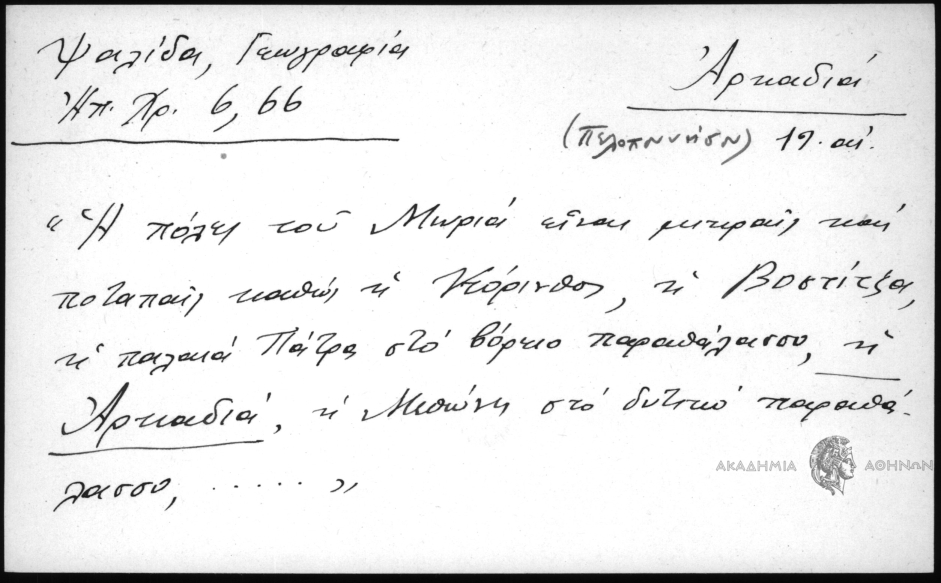 Ψαλίδα, Γεωγραφία
Ἠπ. Χρ. 6, 66
Ἀρκαδιά
(Πελοποννήσου) 19. αἰ.
"Ἡ πόλες τοῦ Μωριᾶ εἶναι μικραῖς καὶ
ποταπαῖς καθὼς ἡ Κόρινθος, ἡ Βοστίτζα,
ἡ παλαιά Πάτρα στό βόρειο παραθάλασσο, ἡ
Ἀρκαδιά, ἡ Μεθώνη στό δυτικό παραθά-
λασσο, ...... "
ΑΚΑΔΗΜΙΑ ΑΘΗΝΩΝ